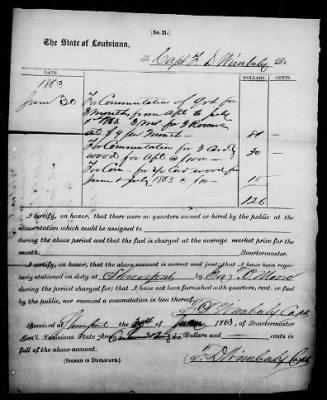 [No. 21.]
The State of Louisiana,
To Capt F. D Wimberly Dr.
DATE DOLLARS CENTS
1863
June 30 For Commutation of Qrs for
3 months from Apl 6 July
1863 3 Rooms
at $9 per Month 81
For Commutation for 3 Cords
wood for Apl @ 30
For Com for Cord wood for
June & July 1863 @ 15
126
I certify, on honor, that there were no quarters owned or hired by the public at the
above station which could be assigned to
during the above period and that the fuel is charged at the average market price for the
month. Quartermaster.
I certify, on honor, that the above account is correct and just; that I have been regu-
larly stationed on duty at Shreveport by
during the period charged for; that I have not been furnished with quarters, rent, or fuel
by the public, nor received a commutation in lieu thereof.
F D Wimberly Capt
Received at Shreveport the 30th of June 1863, of Quartermaster
Gen'l Louisiana State Army Dollars and cents
in full of the above account.
F. D Wimberly Capt
(SIGNED IN DUPLICATE.)